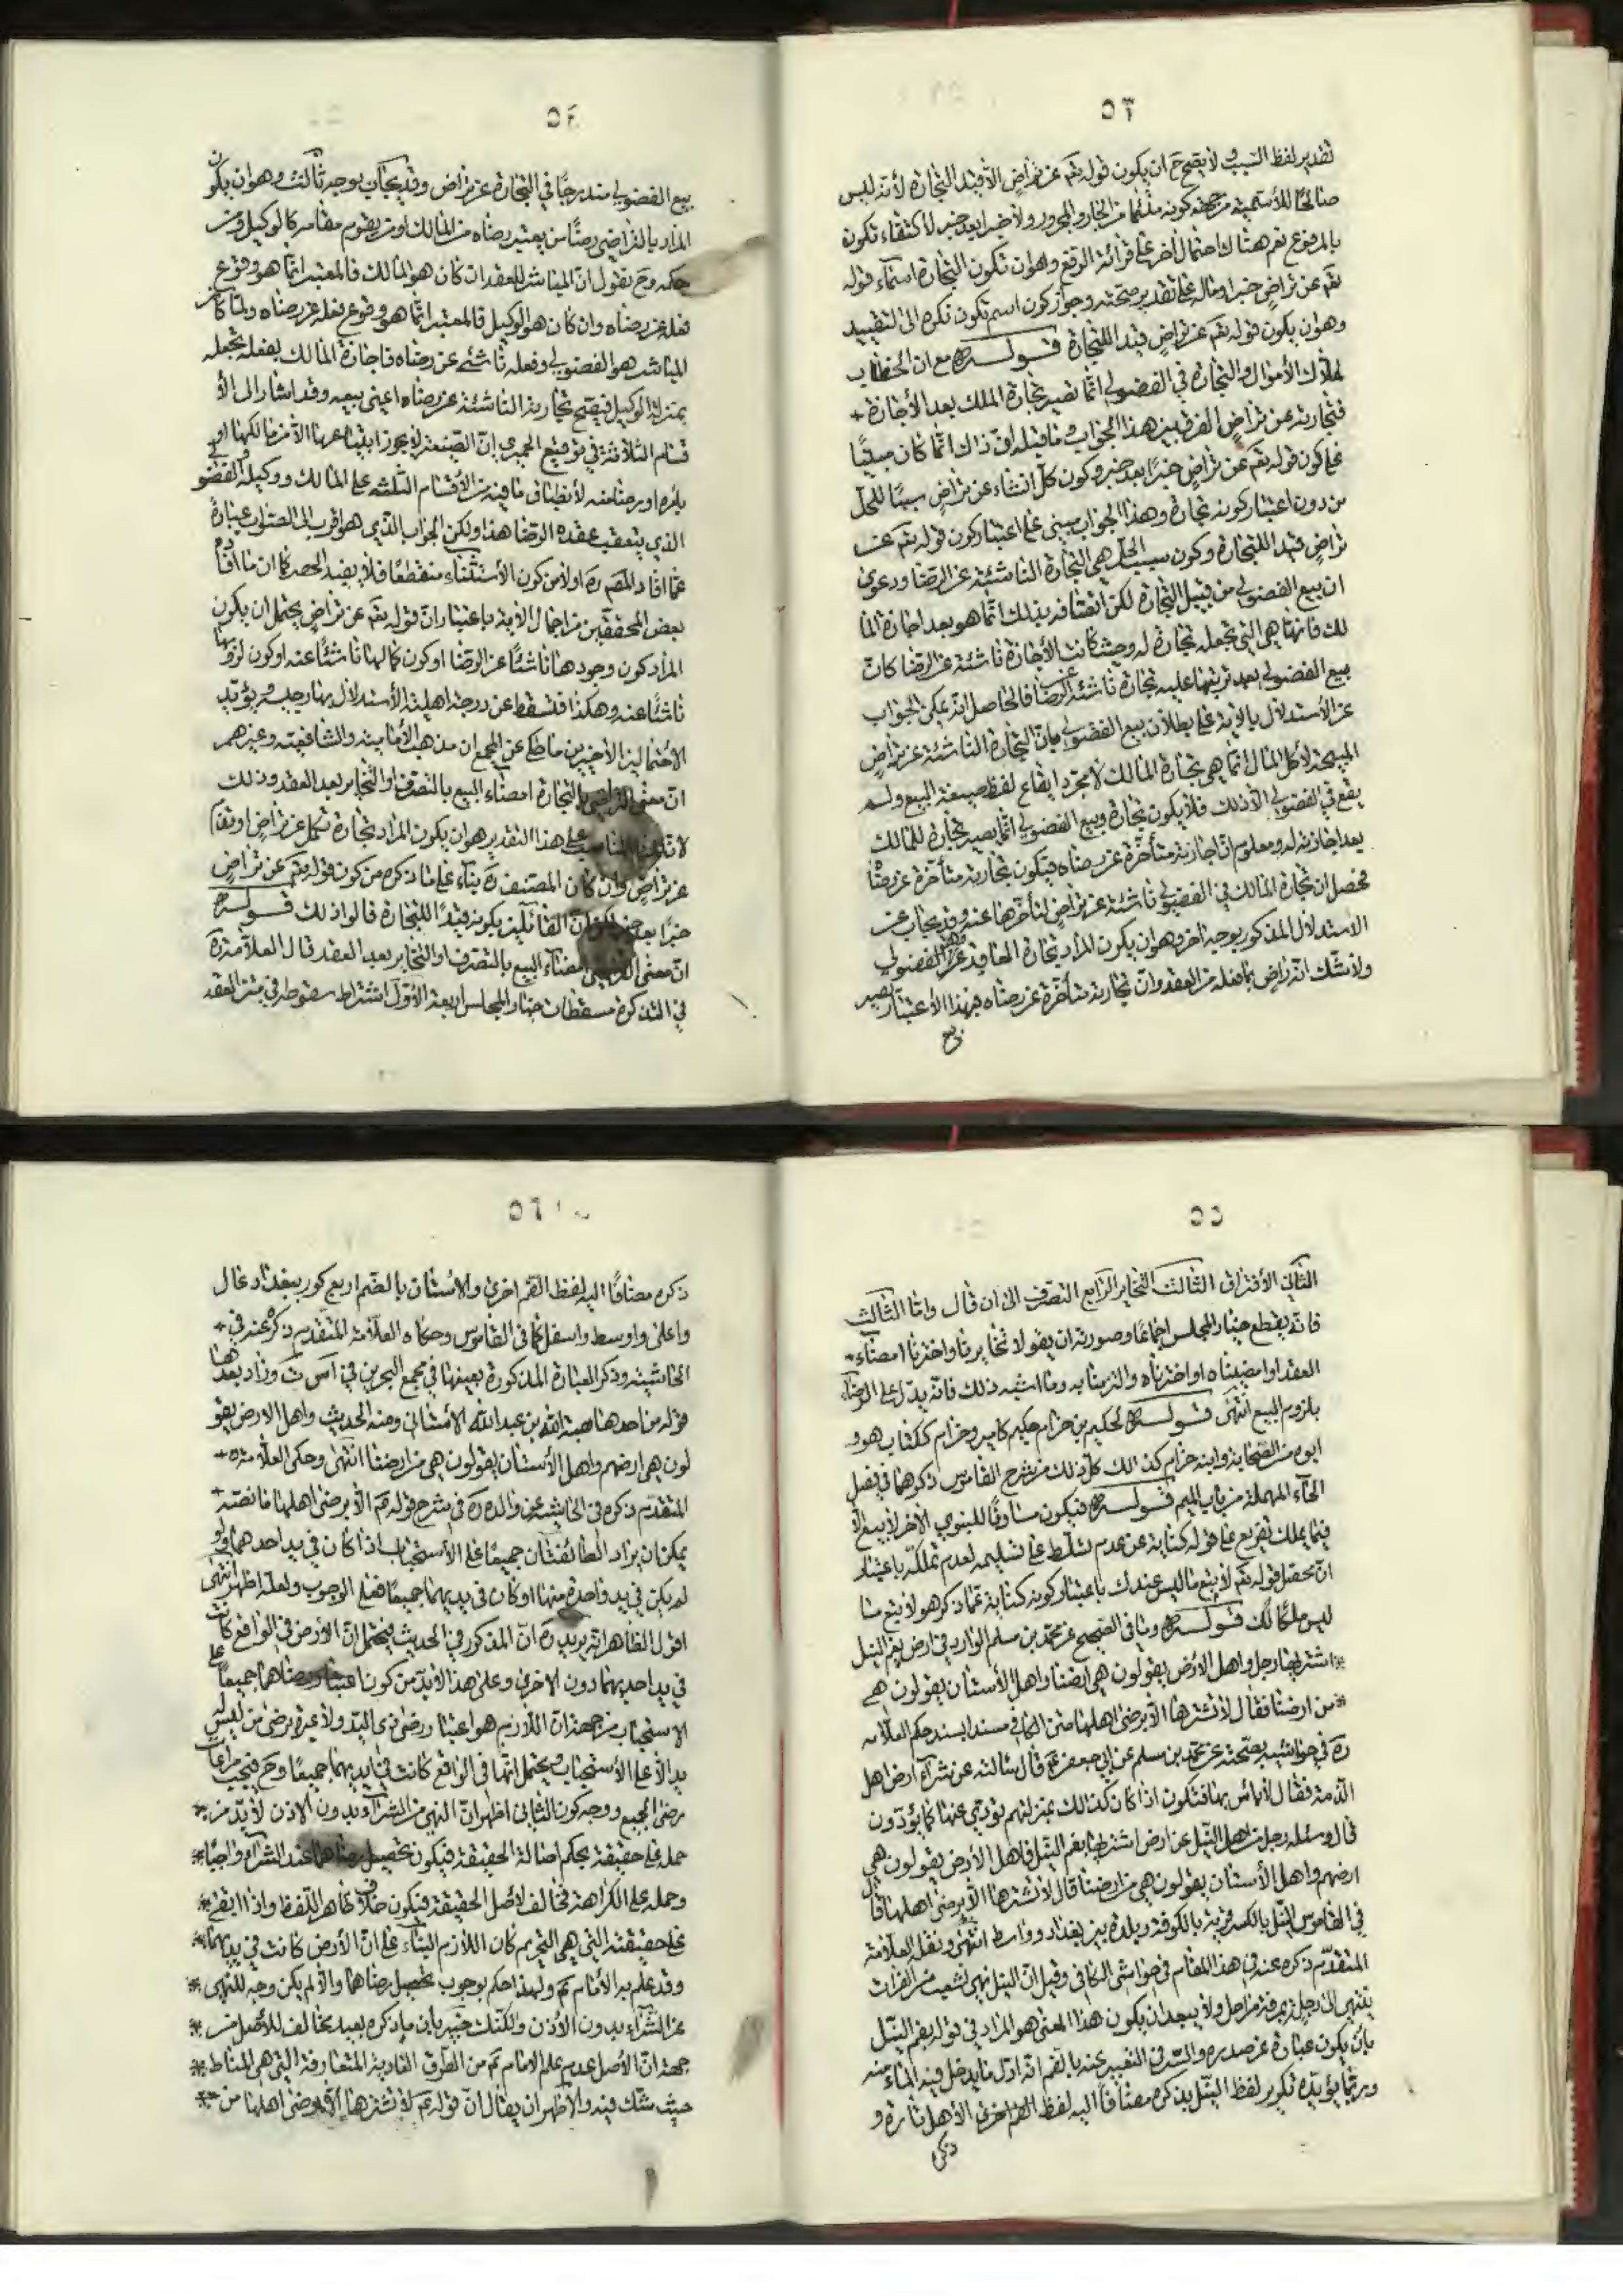 ٥٣
تقدير لفظ السبب ولا يصح ح ان يكون قوله تع عن تراض الا قيد التجارة لأنه ليس
صالحًا للأسمية من جهة كونه ملتئما من الجار والمجرور ولا خبرا بعد خبر لاكتفاء تكون
بالمرفوع نعم هناك احتمال اخر على قرائة الرفع وهو ان تكون التجارة اسما وقوله
تع عن تراض خبرا وماله على تقدير صحته وجواز كون اسم تكون نكرة الى التقييد
وهو ان يكون قوله تع عن تراض قيد اللتجارة قوله مع ان الخطاب
لملاك الأموال والتجارة في الفضولي انما تصير تجارة الملك بعد الأجازة
فتجارته عن تراض الفرق بين هذا الجواب وما قبله ان ذاك انما كان مبنيًا
على كون قوله تع عن تراض خبرًا بعد خبر وكون كل انشاء عن تراض سببًا للحل
من دون اعتبار كونه تجارة وهذا الجواب مبنى على اعتبار كون قوله تع عن
تراض قيد اللتجارة وكون سبب الحل هي التجارة الناشئة عن الرضا ودعوى
ان بيع الفضولي من قبيل التجارة لكن اتصافه بذلك انما هو بعد اجازة الما
لك فانها هي التي تجعله تجارة له وحيث كانت الأجازة ناشئة عن الرضا كان
بيع الفضولي بعد ترتبها عليه تجارة ناشئة عن الرضا فالحاصل انه يمكن الجواب
عن الأستدلال بالاية على بطلان بيع الفضولي بان التجارة الناشئة عن تراض
المبيحة لأكل المال انما هي تجارة المالك لا مجرد ايقاع لفظ صيغة البيع ولم
يقع في الفضولي الا ذلك فلا يكون تجارة وبيع الفضولي انما يصير تجارة للمالك
بعد اجازته له ومعلوم ان اجازته متأخرة عن رضاه فتكون تجارته متأخرة عن رضا
فحصل ان تجارة المالك في الفضولي ناشئة عن تراض لتأخرها عنه وقد يجاب عن
الاستدلال المذكور بوجه اخر وهو ان يكون المراد تجارة العاقد وهو الفضولي
ولا شك انه راض بما فعله من العقد وان تجارته متأخرة عن رضاه فبهذا الأعتبار يصير
٥٤
بيع الفضولي مندرجًا في التجارة عن تراض وقد يجاب بوجه ثالث وهو ان يكون
المراد بالتراضي رضا من يعتبر رضاه من المالك او من يقوم مقامه كالوكيل ومن
حكمه وح نقول ان المباشر للعقد ان كان هو المالك فالمعتبر انما هو وقوع
فعله عن رضاه وان كان هو الوكيل فالمعتبر انما هو وقوع فعله عن رضاه ولما كان
المباشر هو الفضولي وفعله ناشئ عن رضاه فاجازة المالك بفعله تجعله
بمنزلة الوكيل فيصح تجارته الناشئة عن رضاه اعني بيعه وقد اشار الى الأ
قسام الثلاثة في توقيع الحميري ان الضيعة لا يجوز ابتياعها الا من مالكها او
بأمره او برضا منه لأنطباق ما فيه من الأقسام الثلثة على المالك ووكيله والفضو
الذي يتعقب عقده الرضا هذا ولكن الجواب الذي هو اقرب الى الصواب عبارة
عما افاد المصره اولا من كون الأستثناء منقطعًا فلا يفيد الحصر كما ان ما افاده
بعض المحققين من اجمال الاية باعتبار ان قوله تع عن تراض يحتمل ان يكون
المراد كون وجودها ناشئًا عن الرضا او كون كمالها ناشئًا عنه او كون لزومها
ناشئًا عنه وهكذا فتسقط عن درجة اهلية الأستدلال بها رجيه ويؤيد
الأحتمالين الأخيرين ما حكي عن المجمع ان مذهب الأمامية والشافعية وغيرهم
ان معنى التراضي بالتجارة امضاء البيع بالتصرف او التخاير بعد العقد وذلك
لان المناسب على هذا التقدير هو ان يكون المراد تجارة تكمل عن تراض او تقام
عن تراض وان كان المصنف ره بناء على ما ذكره من كون قوله تع عن تراض
خبرًا بعد خبر ان القائلين بكونه قيدًا للتجارة قالوا ذلك قوله
ان معنى التراضي امضاء البيع بالتصرف او التخاير بعد العقد قال العلامة ره
في التذكرة مسقطات خيار المجلس اربعة الأول اشتراط سقوطه في متن العقد
٥٥
الثاني الأفتراق الثالث التخاير الرابع التصرف الى ان قال واما الثالث
فانه يقطع خيار المجلس اجماعًا وصورته ان يقولا تخايرنا واخترنا امضاء
العقد او امضيناه او اخترناه والتزمنا به وما اشبه ذلك فانه يدل على الرضاء
بلزوم البيع انتهى قوله لحكيم بن حزام حكيم كامير وحزام ككتاب هو و
ابوه من الصحابة وابنه حزام كذلك كل ذلك من شرح القاموس ذكرهما في فصل
الحاء المهملة من باب الميم قوله فيكون مساوقًا للنبوي الاخر لا بيع الا
فيما يملك تفريع على قوله كناية عن عدم تسلط على تسليمه لعدم تملكه باعتبار
ان محصل قوله تع لا تبع ما ليس عندك باعتبار كونه كناية عما ذكر هو لا تبع ما
ليس ملكًا لك قوله وما في الصحيح عن محمد بن مسلم الوارد في ارض بفم النيل
اشتراها رجل واهل الأرض يقولون هي ارضنا واهل الأستان يقولون هي
من ارضنا فقال لا تشترها الا برضى اهلها متن الكافي مسندا بسند حكم العلامه
ره في حواشيه بصحته عن محمد بن مسلم عن ابي جعفر ع قال سألته عن شراء ارض اهل
الذمة فقال لا بأس بها فتكون اذا كان كذلك بمنزلتهم تؤدي عنها كما يؤدون
قال وسئله رجل من اهل النيل عن ارض اشتراها بفم النيل فاهل الأرض يقولون هي
ارضهم واهل الأستان يقولون هي من ارضنا قال لا تشترها الا برضى اهلها قال
في القاموس النيل بالكسر قرية بالكوفة وبلدة بين بغداد وواسط انتهى ونقل العلامة
المتقدم ذكره عنه في هذا المقام في حواشي الكافي وقيل ان النيل نهر يتشعب من الفرات
ينتهي الى دجلة ولا يبعد ان يكون هذا المعنى هو المراد في قوله بفم النيل
بان يكون عبارة عن صدره والسر في التعبير عنه بالفم انه اول ما يدخل فيه الماء منه
وربما يؤيده تكرير لفظ النيل بذكره مضافًا اليه لفظ الفم اخرى الأهل تارة و
ذكره
٥٦
ذكره مضافًا اليه لفظ الفم اخرى والأستان بالضم اربع كور ببغداد عال
واعلى واوسط واسفل كما في القاموس وحكاه العلامة المتقدم ذكره عنه في
الحاشية وذكر العبارة المذكورة بعينها في مجمع البحرين في ا س ت وزاد بعدها
قوله من احدها هبة الله بن عبد الله الأستاني ومنه الحديث واهل الارض يقو
لون هي ارضهم واهل الأستان يقولون هي من ارضنا انتهى وحكى العلامة
المتقدم ذكره في الحاشية عن والده ره في شرح قوله ع الا برضى اهلها ما نصه
يمكن ان يراد الطائفتان جميعًا على الأستحباب اذا كان في يد احدهما ولو
لم يكن في يد واحدة منها او كان في يديهما جميعًا فعلى الوجوب ولعله اظهر انتهى
اقول الظاهر انه يريد ره ان المذكور في الحديث فيحتمل ان الأرض في الواقع كانت
في يد احديهما دون الاخرى وعلى هذا لابد من كون اعتبار رضاهما جميعًا على
الاستحباب من جهة ان اللازم هو اعتبار رضى ذي اليد ولا عبرة برضى من ليس له
يد الا على الأستحباب ويحتمل انها في الواقع كانت في ايديهما جميعًا وح فيجب مراعات
رضى الجميع ووجه كون الثاني اظهر ان النهي من الشراء بدون الاذن لا بد من
حمله على حقيقته بحكم اصالة الحقيقة فيكون تحصيل رضاهما عند الشراء واجبًا
وحمله على الكراهة مخالف لأصل الحقيقة فيكون خلاف ظاهر اللفظ واذا ابقى
على حقيقته التي هي التحريم كان اللازم البناء على ان الأرض كانت في يديهما
وقد علم به الأمام ع ولهذا حكم بوجوب تحصيل رضاهما والا لم يكن وجه للنهي
عن الشراء بدون الأذن ولكنك خبير بان ما ذكره بعيد مخالف للأصل من
جهة ان الأصل عدم علم الامام ع من الطرق العادية المتعارفة التي هي المناط
حيث شك فيه والأظهر ان يقال ان قوله ع لا تشترها الا برضى اهلها من